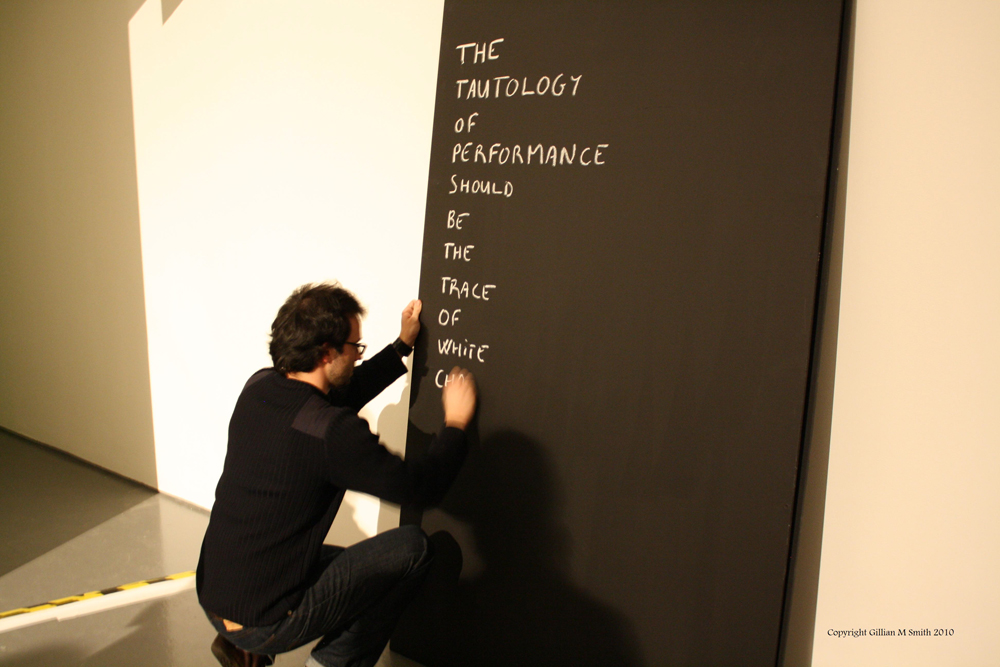 THE
TAUTOLOGY
OF
PERFORMANCE
SHOULD
BE
THE
TRACE
OF
WHITE
Copyright Gillian M Smith 2010